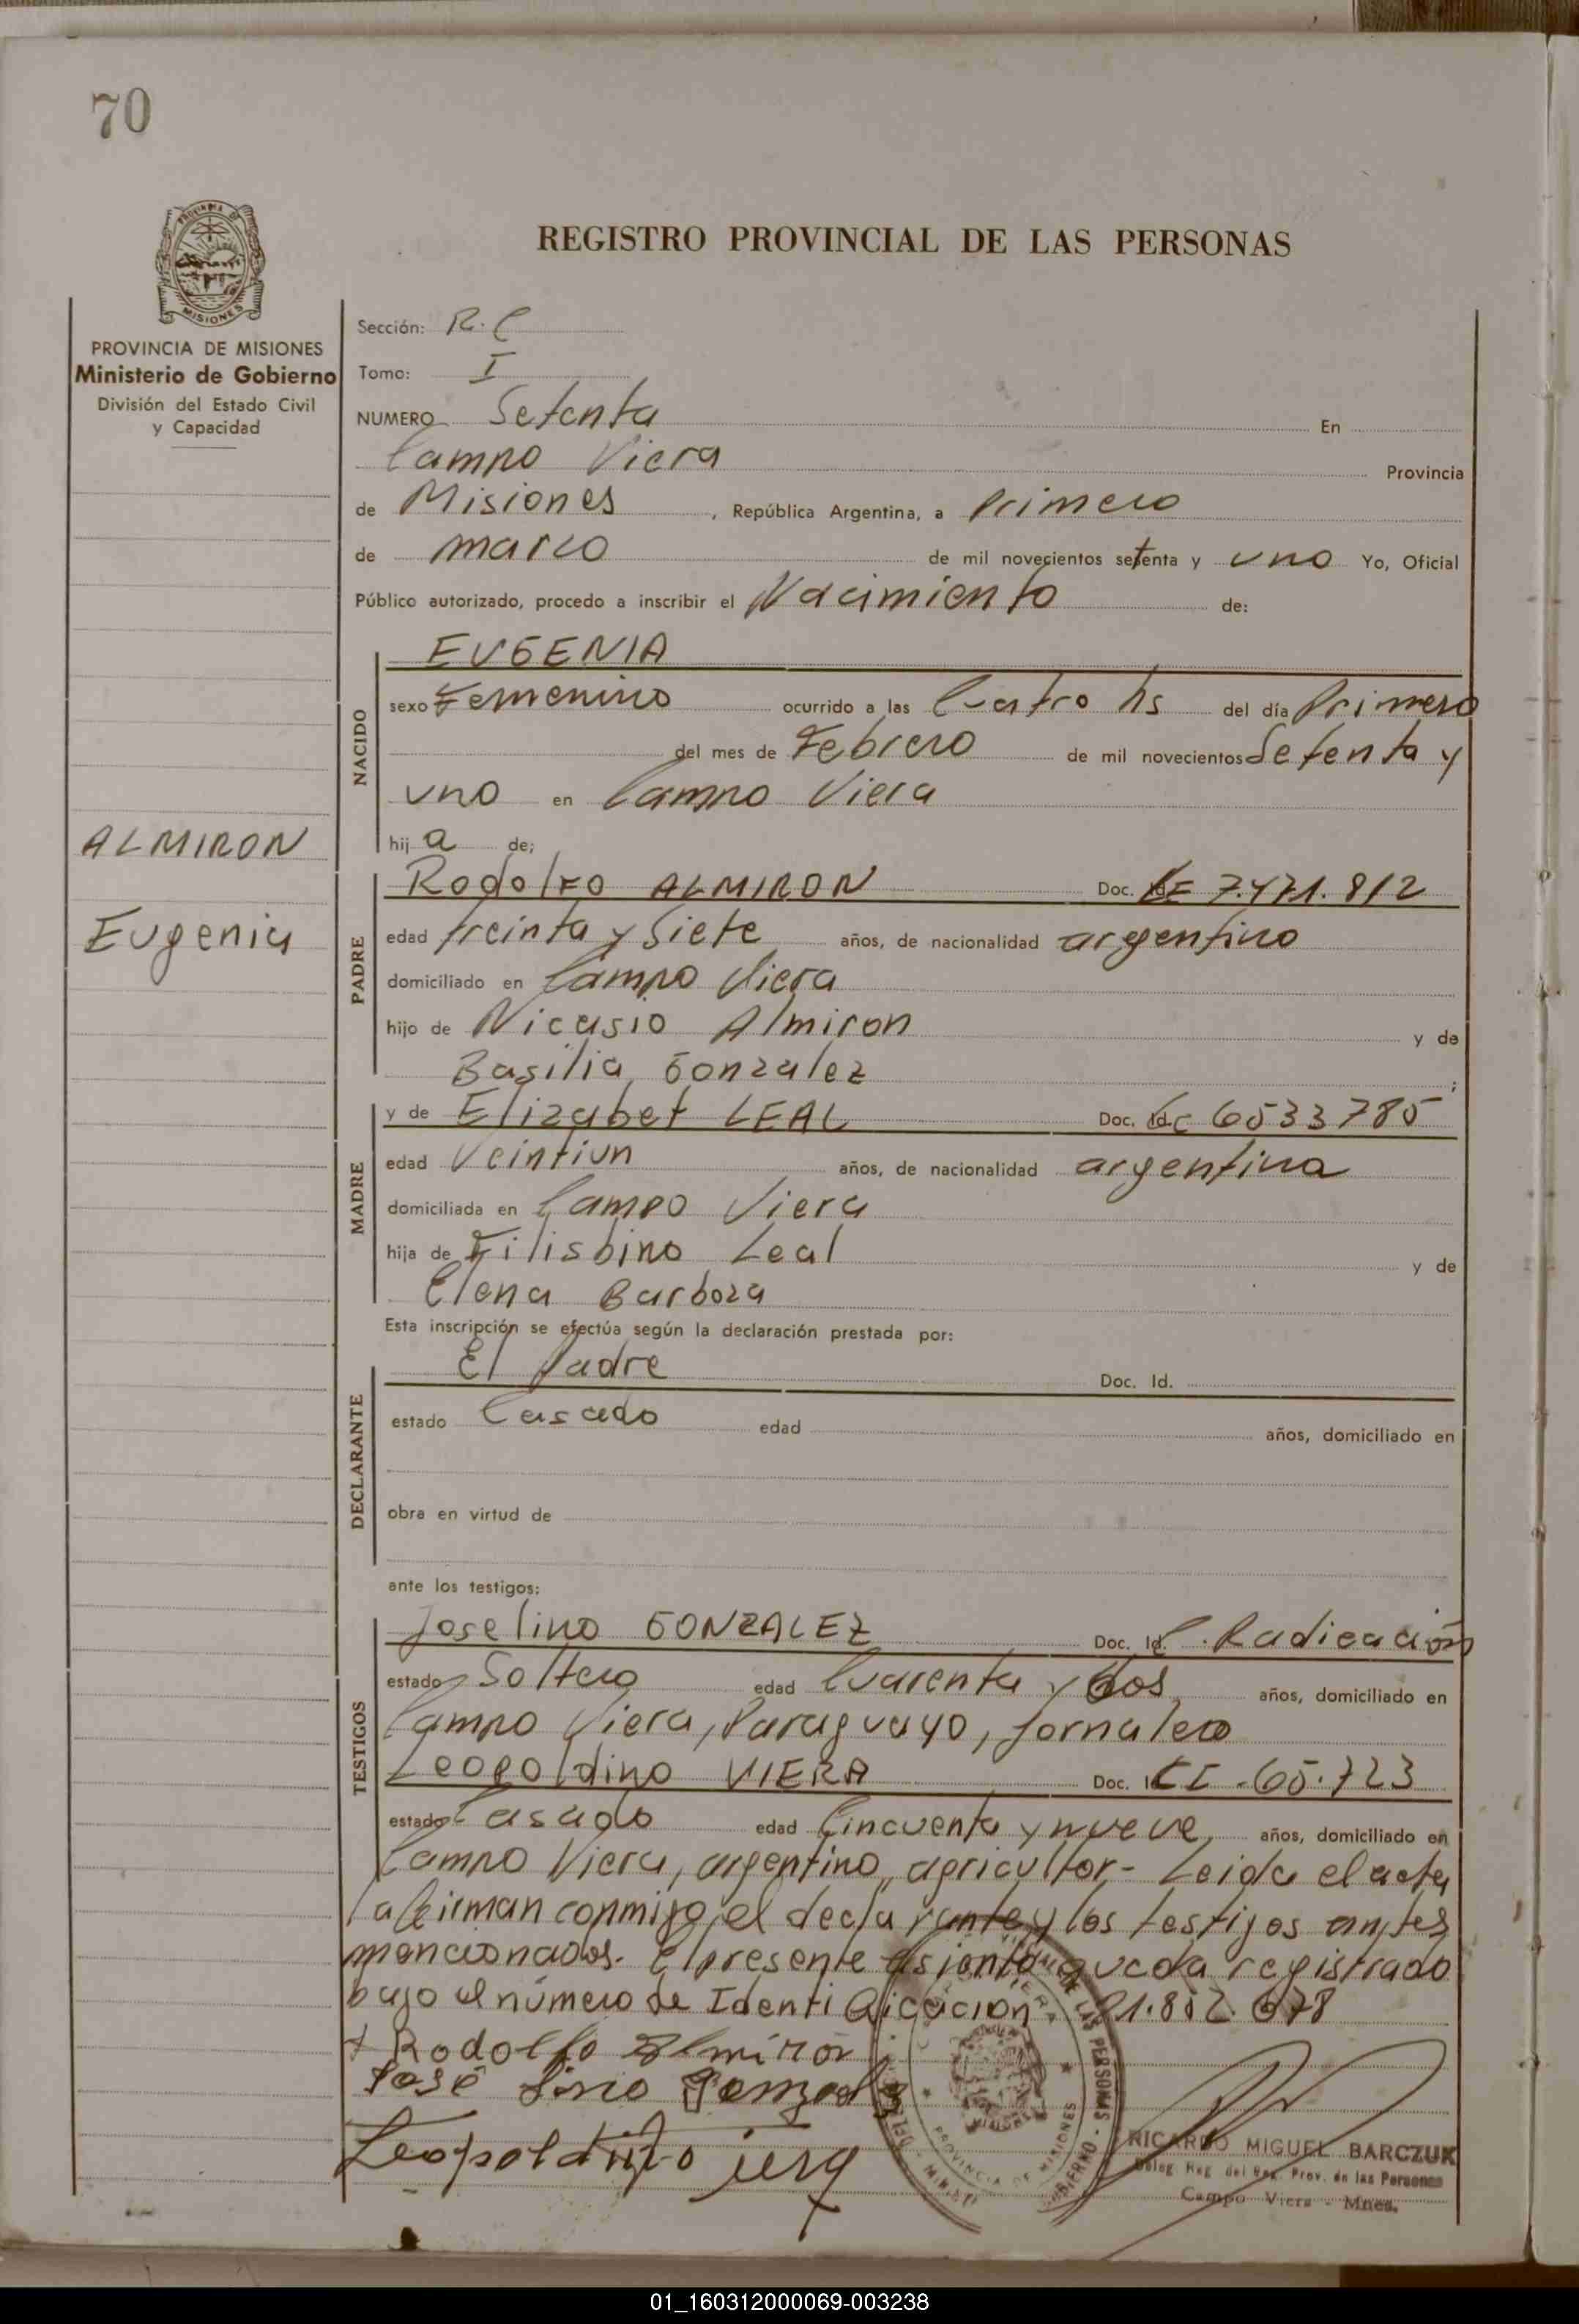 70
PROVINCIA DE
MISIONES
REGISTRO PROVINCIAL DE LAS PERSONAS
PROVINCIA DE MISIONES
Ministerio de Gobierno
División del Estado Civil
y Capacidad
Sección: R. C
Tomo: I
NUMERO Setenta En
Campo Viera Provincia
de Misiones, República Argentina, a Primero
de marzo de mil novecientos setenta y uno Yo, Oficial
Público autorizado, procedo a inscribir el Nacimiento de:
NACIDO
EUGENIA
sexo Femenino ocurrido a las Cuatro hs del día Primero
del mes de Febrero de mil novecientos Setenta y
uno en Campo Viera
hij a de;
ALMIRON
Eugenia
PADRE
Rodolfo ALMIRON Doc. LE 7.471.812
edad treinta y Siete años, de nacionalidad argentino
domiciliado en Campo Viera
hijo de Nicasio Almiron y de
Basilia Gonzalez ;
MADRE
y de Elizabet LEAL Doc. Id. LC 6533785
edad Veintiun años, de nacionalidad argentina
domiciliada en Campo Viera
hija de Filisbino Leal y de
Elena Barboza
Esta inscripción se efectúa según la declaración prestada por:
DECLARANTE
El Padre Doc. Id.
estado Casado edad años, domiciliado en
obra en virtud de
ante los testigos:
TESTIGOS
Joselino GONZALEZ Doc. Id. C. Radicación
estado Soltero edad Cuarenta y dos, años, domiciliado en
Campo Viera, Paraguayo, Jornalero
Leopoldino VIERA Doc. Id. CI. 65.723
estado Casado edad Cincuenta y nueve, años, domiciliado en
Campo Viera, argentino, agricultor- Leida el acta
la firman conmigo, el declarante y los testigos antes
mencionados. El presente asiento queda registrado
bajo el número de Identificación 21.802.678
+ Rodolfo Almiron
José Lino Gonzalez
Leopoldino
PROVINCIA DE MISIONES
RICARDO MIGUEL BARCZUK
Deleg. Reg. del Reg. Prov. de las Personas
Campo Viera - Mnes.
01_160312000069-003238